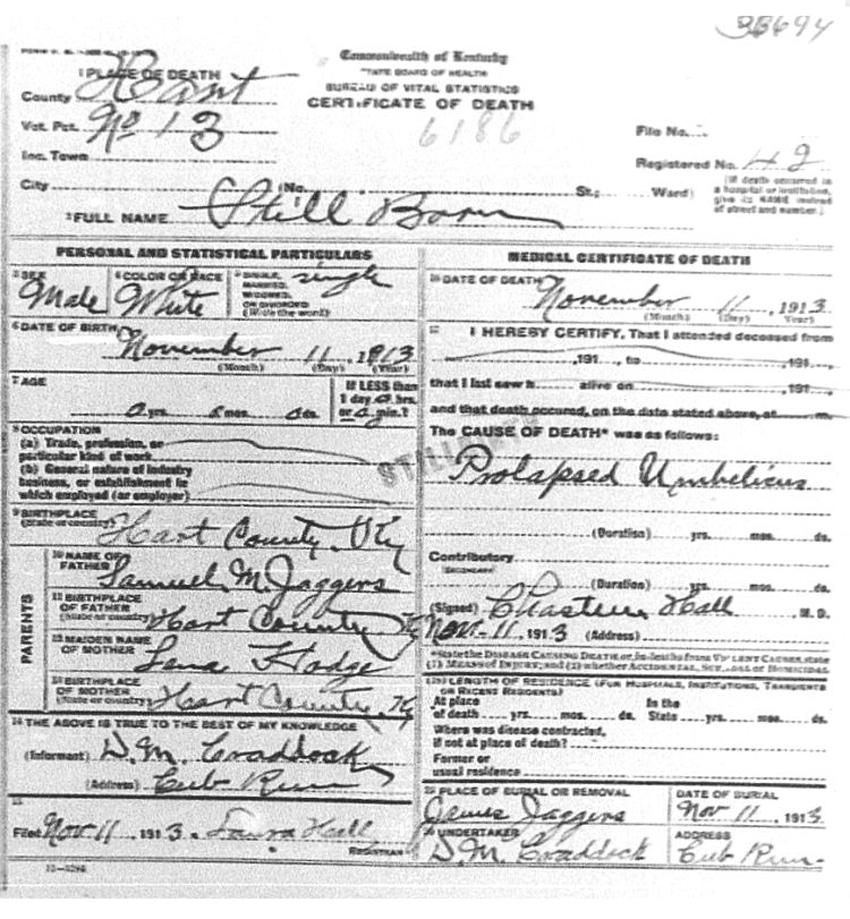 33694
Commonwealth of Kentucky
STATE BOARD OF HEALTH
BUREAU OF VITAL STATISTICS
CERTIFICATE OF DEATH
6186
1 PLACE OF DEATH
County Hart
Vot. Pct. No 13
Inc. Town
City (No. St.; Ward)
File No.
Registered No. 42
(If death occurred in a hospital or institution, give its NAME instead of street and number.)
2 FULL NAME Still Born
PERSONAL AND STATISTICAL PARTICULARS
3 SEX Male
4 COLOR OR RACE White
5 SINGLE, MARRIED, WIDOWED, OR DIVORCED (Write the word) single
6 DATE OF BIRTH November 11, 1913
(Month) (Day) (Year)
7 AGE
0 yrs. 0 mos. 0 ds.
If LESS than 1 day 0 hrs. or 0 min.?
8 OCCUPATION
(a) Trade, profession, or
particular kind of work
(b) General nature of industry
business, or establishment in
which employed (or employer)
9 BIRTHPLACE
(State or country) Hart County, Ky
PARENTS
10 NAME OF FATHER Samuel M. Jaggers
11 BIRTHPLACE OF FATHER
(State or country) Hart County Ky
12 MAIDEN NAME OF MOTHER Lena Hodge
13 BIRTHPLACE OF MOTHER
(State or country) Hart County, Ky
14 THE ABOVE IS TRUE TO THE BEST OF MY KNOWLEDGE
(Informant) D. M. Craddock
(Address) Cub Run
15
Filed Nov 11, 1913. Laura Hall
REGISTRAR
MEDICAL CERTIFICATE OF DEATH
16 DATE OF DEATH November 11, 1913
(Month) (Day) (Year)
17 I HEREBY CERTIFY, That I attended deceased from
,191 , to ,191 ,
that I last saw h alive on ,191 ,
and that death occured, on the date stated above, at m.
The CAUSE OF DEATH* was as follows:
STILLBIRTH
Prolapsed Umbelicus
(Duration) yrs. mos. ds.
Contributory
SECONDARY
(Duration) yrs. mos. ds.
(Signed) Chasteen Hall M. D.
Nov-11 1913 (Address)
*State the DISEASE CAUSING DEATH or, in deaths from VIOLENT CAUSES, state
(1) MEANS OF INJURY; and (2) whether ACCIDENTAL, SUICIDAL or HOMICIDAL
18 LENGTH OF RESIDENCE (FOR HOSPITALS, INSTITUTIONS, TRANSIENTS
OR RECENT RESIDENTS)
At place of death yrs. mos. ds. In the State yrs. mos. ds.
Where was disease contracted,
if not at place of death?
Former or
usual residence
19 PLACE OF BURIAL OR REMOVAL
James Jaggers
DATE OF BURIAL
Nov 11, 1913
20 UNDERTAKER
D. M. Craddock
ADDRESS
Cub Run